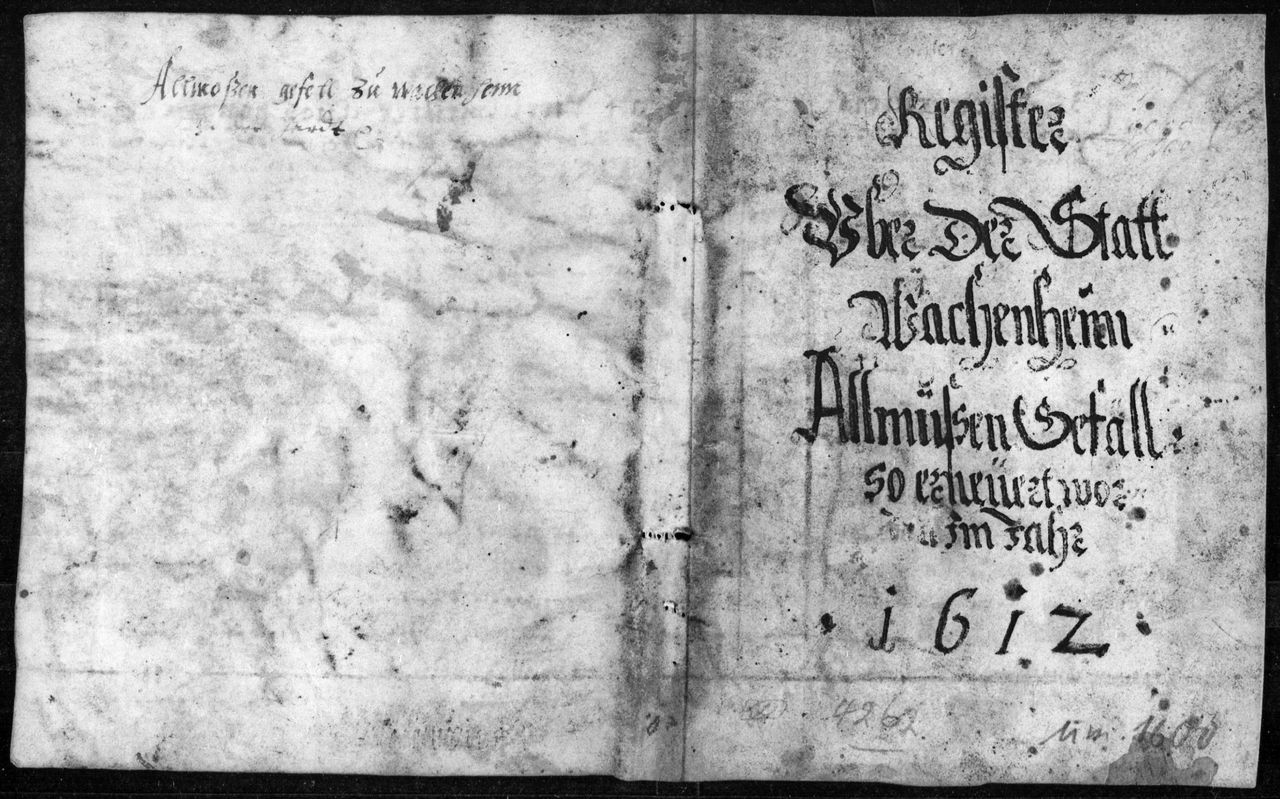 Allmoßen gefell zu wachenheim
hardt
Register
Vber Der Statt
Wachenheim
Allmüßen Gefäll
so erneüert wor
den im Jahr
1612
4262
um 1600